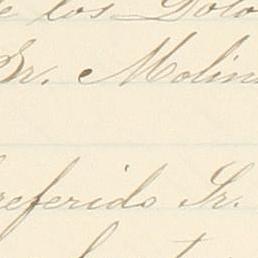 e los Dolo
Sr. Molin
referido Sr.